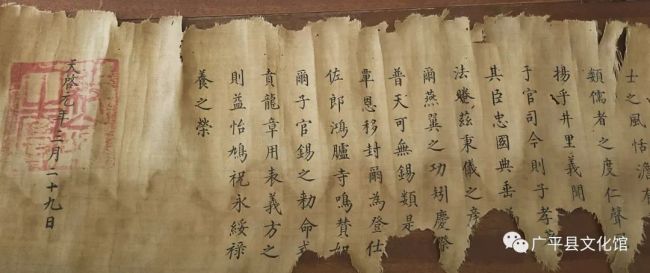 士之風恬澹有
類儒者之度仁聲
揚乎井里義聞
于官司令則子孝
其臣忠國典垂
法茲秉儀之
爾燕翼之功矧慶
普天可無錫類是
覃恩移封爾為登仕
佐郎鴻臚寺鳴贊如
爾子官錫之勅命式
賁龍章用表義方之
則益怡鳩祝永綏祿
養之榮
天啓元年三月二十九日
广平县文化馆